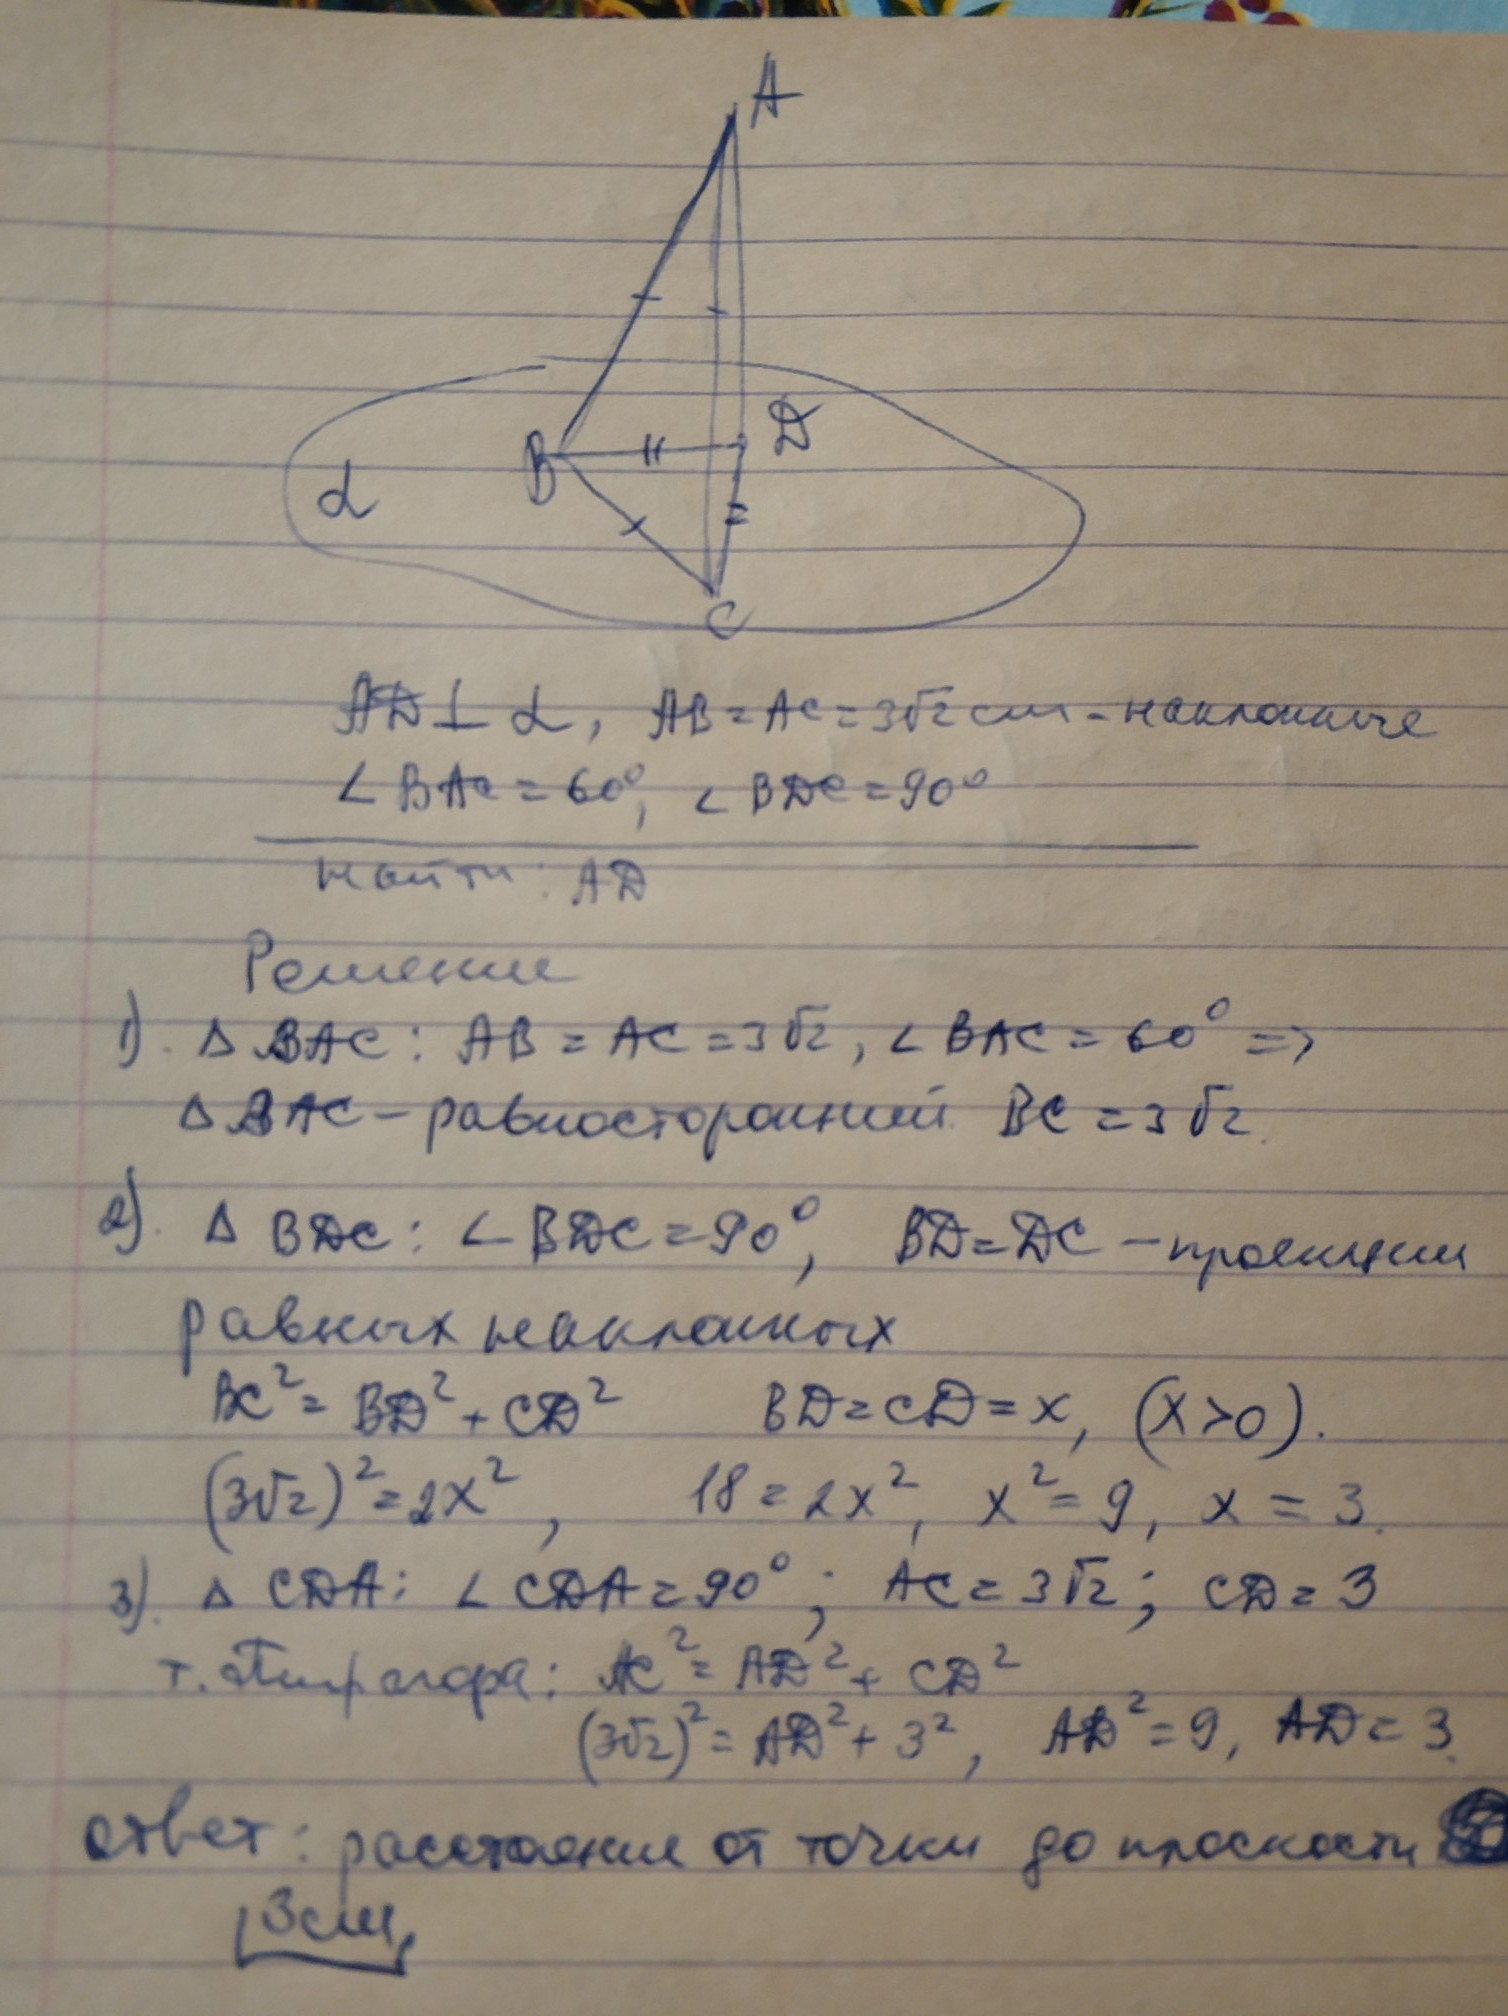 A
B
D
α
C
AD⊥α, AB=AC=3√2 см - наклонные
∠BAC=60°, ∠BDC=90°
Найти: AD
Решение
1). △BAC: AB=AC=3√2, ∠BAC=60° =>
△BAC - равносторонний. BC=3√2.
2). △BDC: ∠BDC=90°, BD=DC - проекции
равных наклонных
BC²=BD²+CD² BD=CD=x, (x>0).
(3√2)²=2x², 18=2x², x²=9, x=3.
3). △CDA: ∠CDA=90°; AC=3√2; CD=3
т. Пифагора: AC²=AD²+CD²
(3√2)²=AD²+3², AD²=9, AD=3.
ответ: расстояние от точки до плоскости
3см.